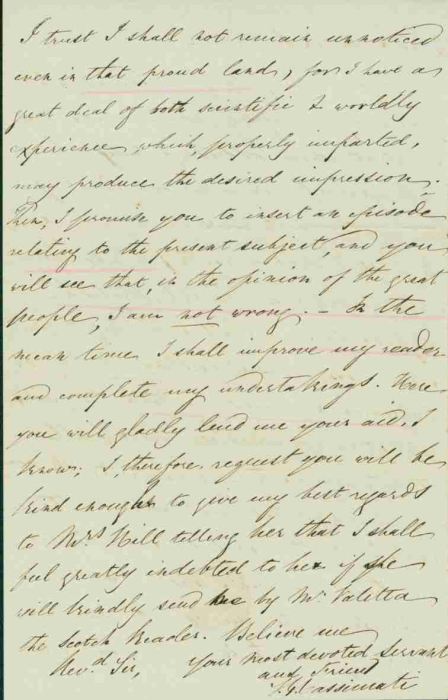 I trust I shall not remain unnoticed
even in that proud land, for I have a
great deal of both scientific & worldly
experience which, properly imparted,
may produce the desired impression.
Then, I promise you to insert an episode
relating to the present subject, and you
will see that, in the opinion of the great
people, I am not wrong. – In the
mean time I shall improve my reader
and complete my undertakings. Here
you will gladly lend me your aid, I
know; I, therefore, request you will be
kind enough to give my best regards
to Mrs Hill telling her that I shall
feel greatly indebted to her if she
will kindly send me by Mr Valetta
the scotch Reader. Believe me
Rev.d Sir, your most devoted servant
and Friend